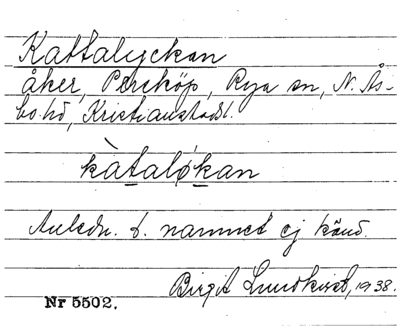 Kattalyckan
åker, Perstöp, Rya sn, N. Ås-
bo hd, Kristianstads l.
kàtaløkan
Anledn. t. namnet ej känd.
Birgit Lundkvist, 1938.
Nr 5502.